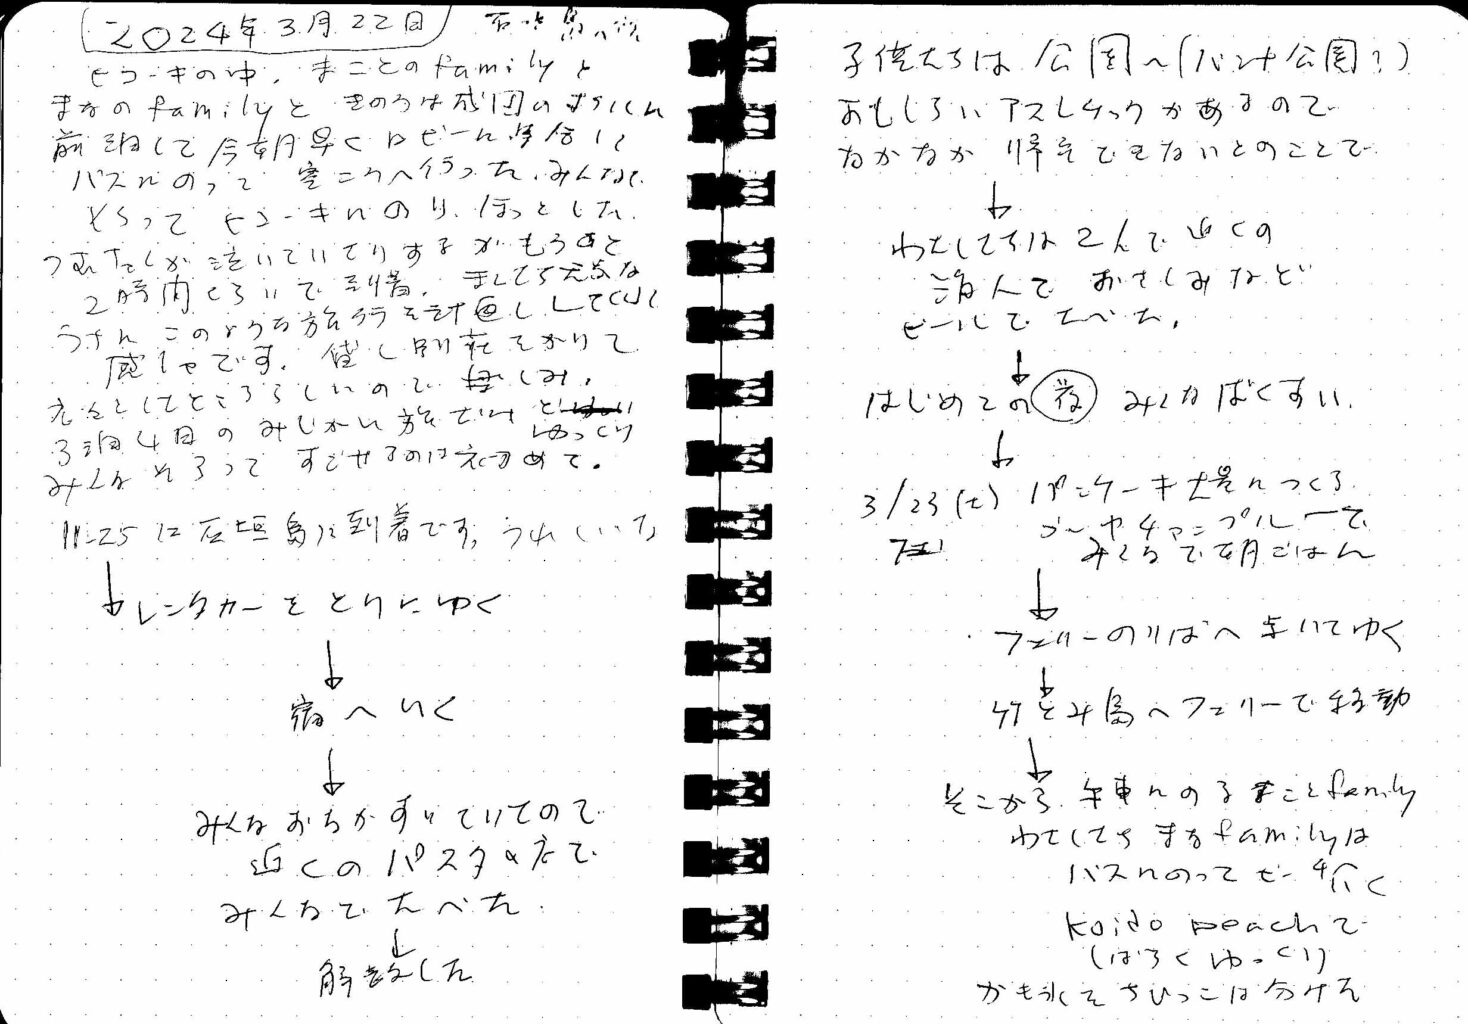 2024年3月22日 石垣島への旅
ヒコーキの中、まことのfamilyと
まなのfamilyと きのうは成田の
前泊して今朝早くロビーに集合して
バスにのって 空こうへ行った、みんなで
そろって ヒコーキにのり、ほっとした。
つむたんが泣いていたりするがもうあと
2時間くらいで到着。
このような旅行を計画してくれて
感しゃです。 貸し別荘をかりて
ところらしいので 楽しみ。
3泊4日のみじかい旅だけど ゆっくり
みんなそろって すごせるのは初めて。
11:25に石垣島に到着です。うれしいな
↓レンタカーをとりにゆく
↓
宿へいく
↓
みんなおなかすいていたので
近くのパスタの店で
みんなでたべた。
↓
解散した
子供たちは 公園へ(バンナ公園?)
おもしろいアスレチックがあるので
なかなか 帰えてきないとのことで
↓
わたしたちは2人で近くの
海人で おさしみなど
ビールでたべた。
↓
はじめての夜 みんなばくすい。
↓
3/23(土) パンケーキ大量につくる
ゴーヤチャンプルーで
みんなで朝ごはん
↓
フェリーのりばへ歩いてゆく
↓
竹とみ島へフェリーで移動
↓
そこから 牛車にのるまことfamily
わたしたちまなfamilyは
バスにのってビーチへ行く
Koido beachで
しばらくゆっくり